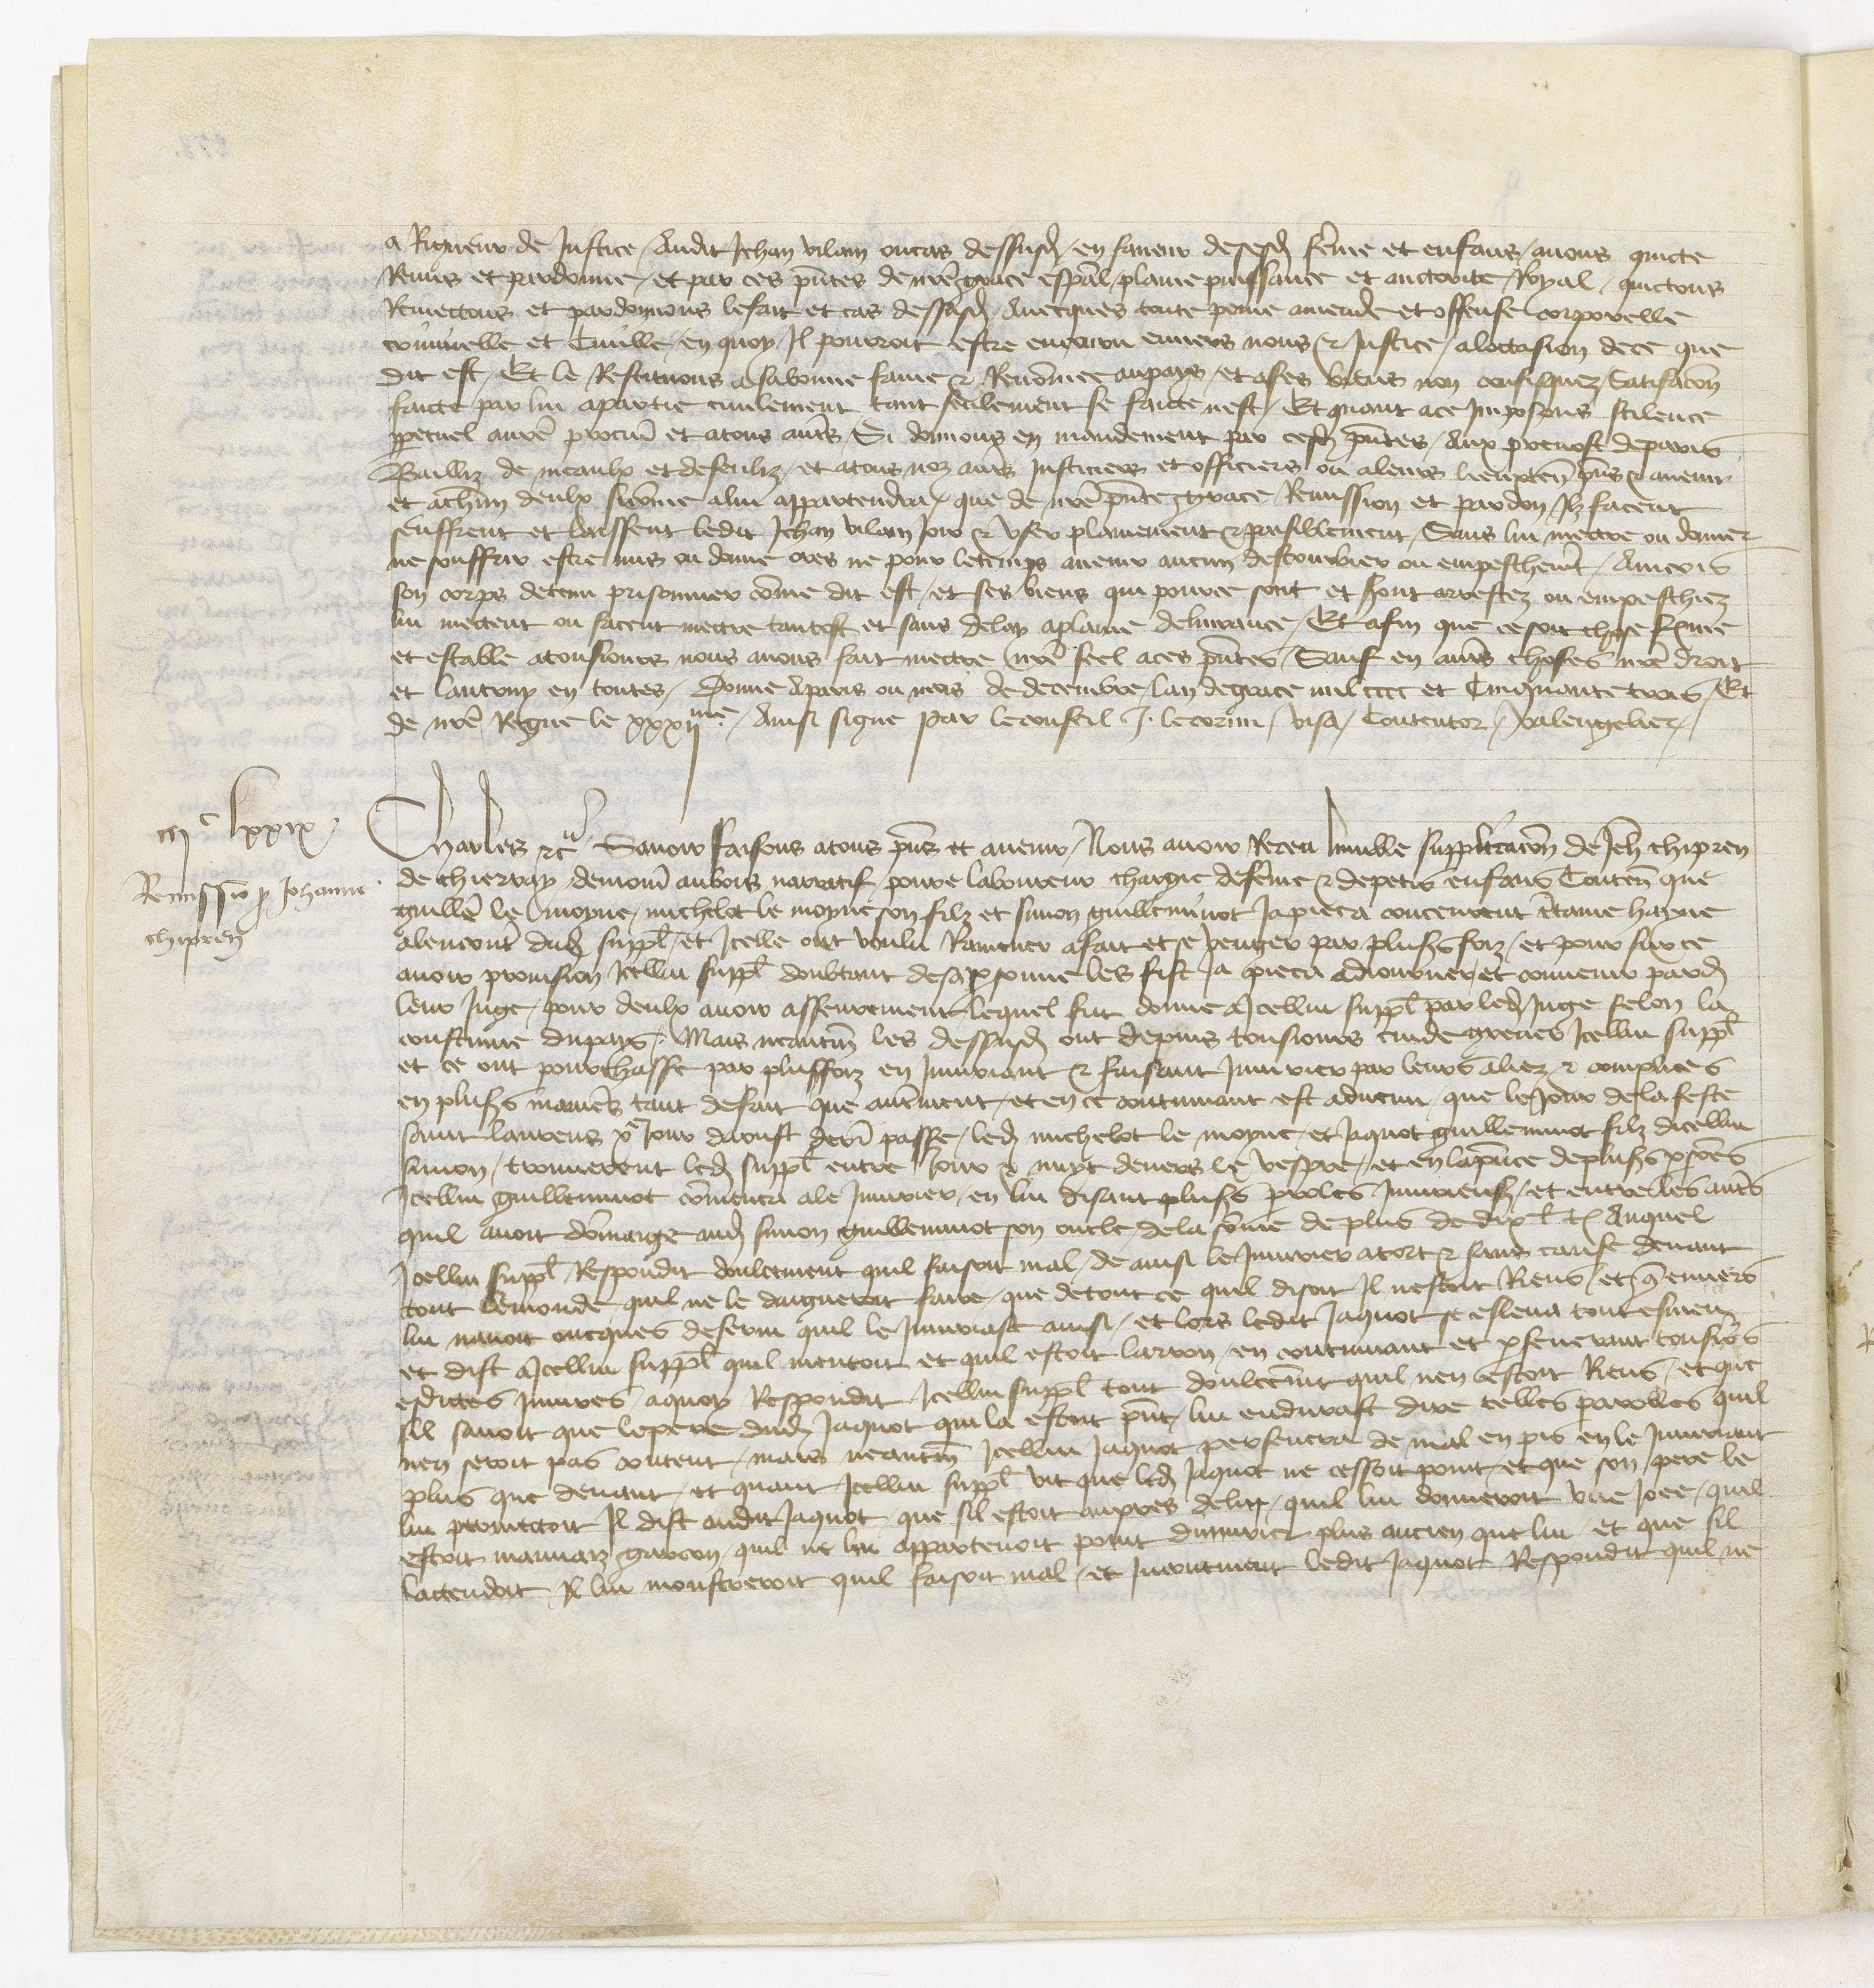 a Rigueur de Justice / Audit Jehan vilain oucas dessusd / en faveur de sesd fēme et enfans / avons quicte
Remis et pardonne / et par ces pñtes de nrē grace espāl / plaine puissance et auctorite / Royal / quictons
Remettons et pardonnons le fait et cas dessusd / Avecques toute peine amende et offense corporelle
criminelle et Civille / en quoy / Il pourroit estre encouru envers nous & Justice / a loccasion de ce que
dit est / Et le Restituons a sa bonne fame & Renōmee au pays / et a ses biens non confisquez / Satisfacōn
faicte par lui a partie civilement tant seulement se faicte nest / Et quant a ce Imposons scilence
ppetuel a nrē procur̄ et a tous autr̄s / Si donnons en mandement par cesd pñtes / Aux prevost de paris
Bailliz de meaulx et de senliz / et a tous noz autr̄s Justiciers et officiers ou a leurs lieuxten̄ pñs & avenir
et a chūn deulx si cōme a lui appartendra / que de nrē pñte grace Remission et pardon / Ilz facent
seuffrent et laissent ledit Jehan vilain Joir & User plainement & paisiblement / Sans lui mettre ou donner
ne souffrir estre mis ou donne ores ne pour le temps avenir aucun destourbier ou empeschem̄t / Aincois
son corps detenu prisonnier cōme dit est / et ses biens qui pource sont et seront arrestez ou empeschiez
lui mettent ou facent mettre tantost et sans delay a plaine delivrance / Et afin que ce soit chose ferme
et estable a tousiours nous avons fait mettre nrē seel a ces pñtes / Sauf en autr̄s choses nrē droit
et lautruy en toutes / Donne A paris ou mois de decembre / lan de grace mil cccc et Cinquante trois / Et
de nrē Regne le xxxii me / Ainsi signe Par le conseil J. le corim / visa / Contentor / valengelier /
iii c lxxix /
Remissio p Johanne
chipren
Charles &c Savoir faisons a tous pñs et avenir / Nous avoir Receu lumble supplicacōn de Jeh chipren
de chierray / demour̄ au bois narratif / povre laboureur chargie de fēme & de petis enfans Conten̄ que
guillē le moyne / michelet le moyne son filz et simon guilleminot Ja pieca conceurent c̄taine hayne
a lencontr̄ dud suppl / et Icelle ont voulu Ramener a fait et se venger par plus̄s foiz / et pour sur ce
avoir provision Icellui suppl doubtant de sa psonne les fist Ja pieca adiourner / et convenir pard
leur Juge / pour deulx avoir asseurement / lequel fut donne a Icellui suppl par led Juge selon la
coustume du pays / Mais neantm̄ les dessusd ont depuis tousiours cuide grever Icellui suppl
et ce ont pourchasse par plus̄s foiz en Iniuriant & faisant Iniurier par leurs aliez & complices
en plus̄s manier̄s tant de fait que autrēment / et en ce continuant est advenu / que le Jour de la feste
saint laurens xe Jour daoust dern̄ passe / led michelet le moyne / et Jaquot guilleminot filz dicellui
simon / trouverent led suppl entre Jour & nuyt devers le vespre / et en la pñce de plus̄s psōnes
Icellui guilleminot cōmenca a le Iniurier / en lui disant plus̄s proles Iniurieuses / et entre les autr̄s
quil avoit dōmaige aud simon guilleminot son oncle / de la sōme de plus de dix l tz Auquel
Icellui suppl Respondit doulcement quil faisoit mal / de ainsi le Iniurier a tort & sans cause devant
tout le monde / quil ne le daigneroit faire / que de tout ce quil disoit Il nestoit Riens / et q̄ envers
lui navoit oncques deservi quil le Iniuriast ainsi / et lors ledit Jaquot se esleva tout esmeu
et dist a Icellui suppl quil mentoit et quil estoit larron / en continuant et pseverant tousio͛s
esdictes Iniures / a quoy Respondit Icellui suppl tout doulcem̄t quil nen estoit Riens / et que
sil savoit que le pere dud Jaquot qui la estoit pñt / lui endurast dire telles parolles quil
nen seroit pas content / mais neantm̄ Icellui Jaquot persevera de mal en pis en le Iniuriant
plus que devant / et quant Icellui suppl vit que led Jaquot ne cessoit point / et que son pere le
lui permettoit Il dist audit Jaquot / que sil estoit aupres de luy / quil lui donneroit une Joee / quil
estoit mauvaiz garcon / quil ne lui appartenoit point diniurier plus ancien que lui / et que sil
lattendoit / Il lui monstreroit quil faisoit mal / et Incontinent ledit Jaquot Respondit quil ne